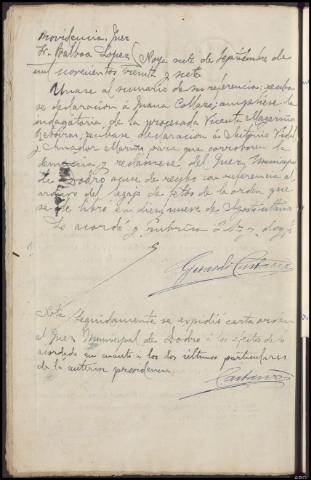 Providencia. Juez
Sr. Balboa López / Noya siete de Septiembre de
mil novecientos veinte y siete
Unase al sumario de su referencia; reciba
se declaración á Juana Collazo; ampliese la
indagatoria de la procesada
recibase declaración á Vidal
y Amador Mariño para que corroboren la
denuncia y reclamese del Juez Municipal
de Dodro acuse de recibo con referencia al
de la orden que
se le libró en diez y nueve de Agosto último
Lo acordó y rubrica S.Sª, doy fé
Gerardo
Nota / Seguidamente se expidió carta orden
al Juez Municipal de Dodro á los efectos de lo
acordado en cuanto á los dos últimos particulares
de la anterior providencia.